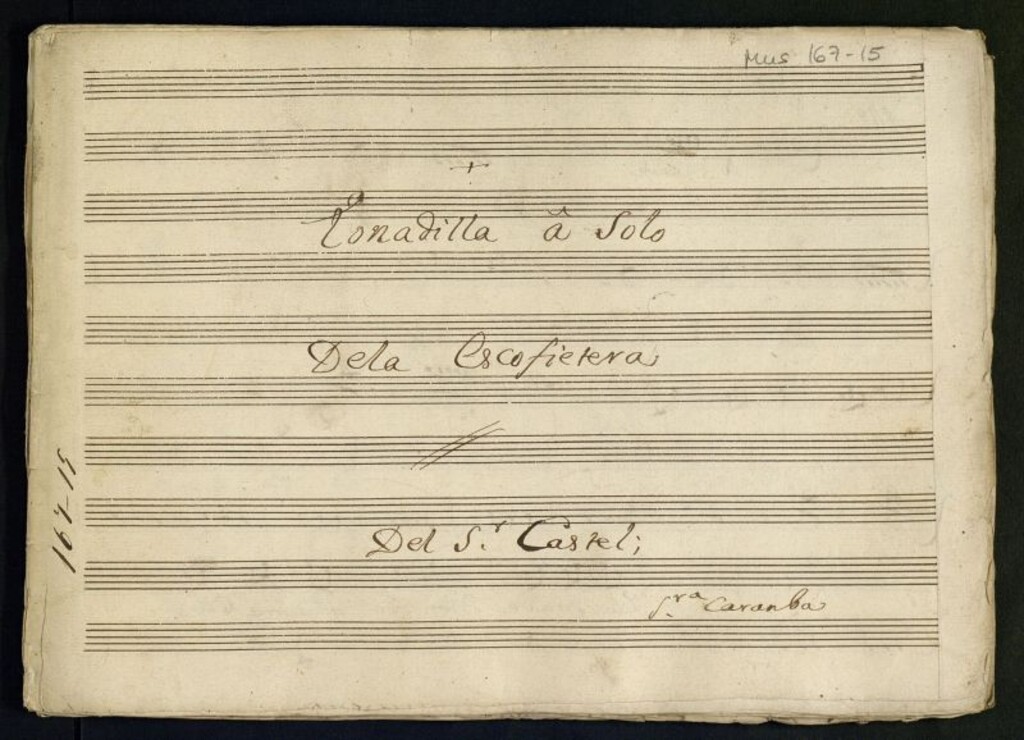 Mus 167-15
Tonadilla â Solo
Dela Escofietera
Del S.r Castel;
S.ra Caranba
167-15